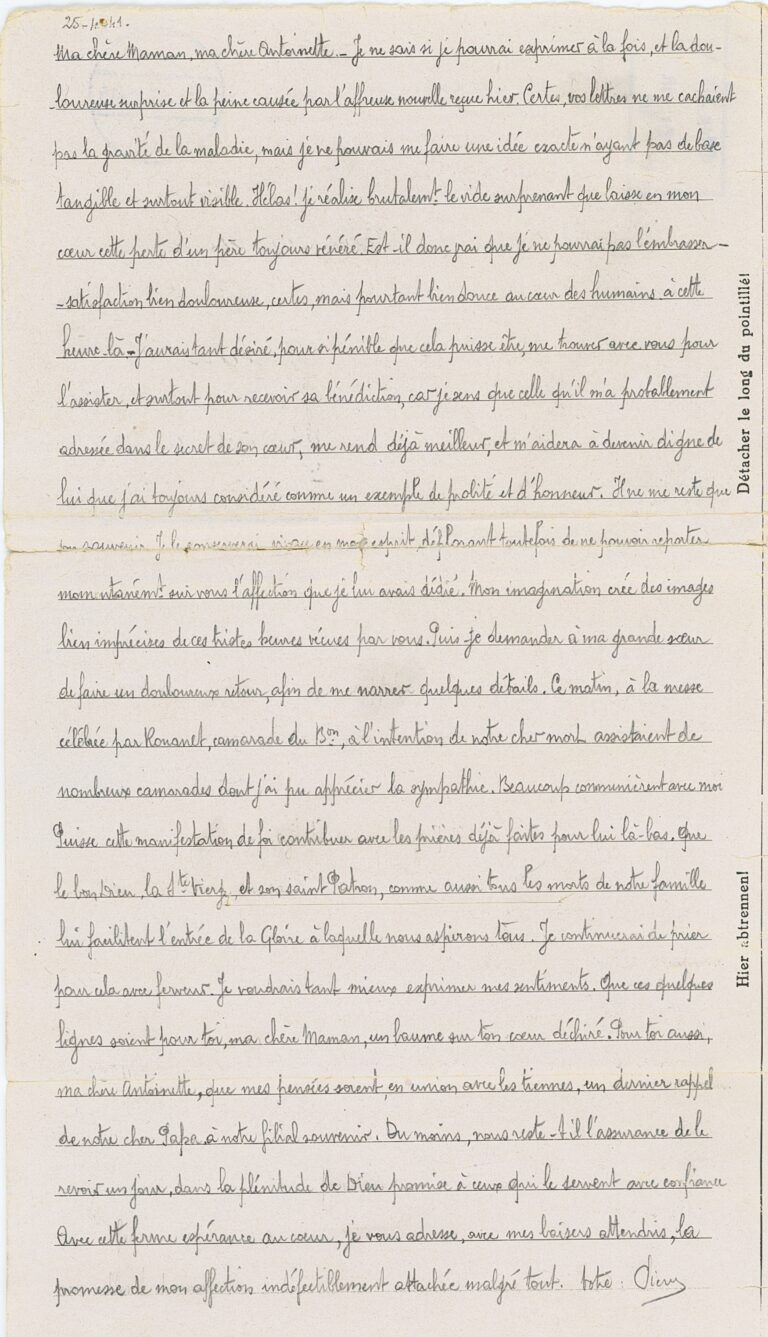 25-4-41.
Ma chère Maman, ma chère Antoinette. – Je ne sais si je pourrai exprimer à la fois, et la dou-
-loureuse surprise et la peine causée par l'affreuse nouvelle reçue hier. Certes, vos lettres ne me cachaient
pas la gravité de la maladie, mais je ne pouvais me faire une idée exacte n'ayant pas de base
tangible et surtout visible. Hélas! je réalise brutalemt le vide surprenant que laisse en mon
cœur cette perte d'un père toujours vénéré. Est-il donc vrai que je ne pourrai pas l'embrasser –
-satisfaction bien douloureuse, certes, mais pourtant bien douce au cœur des humains à cette
heure-là – J'aurais tant désiré, pour si pénible que cela puisse être, me trouver avec vous pour
l'assister, et surtout pour recevoir sa bénédiction, car je sens que celle qu'il m'a probablement
adressée dans le secret de son cœur, me rend déjà meilleur, et m'aidera à devenir digne de
lui que j'ai toujours considéré comme un exemple de probité et d'honneur. Il ne me reste que
son souvenir. Je le conserverai vivace en mon esprit, déplorant toutefois de ne pouvoir reporter
momentanémt sur vous l'affection que je lui avais dédié. Mon imagination crée des images
bien imprécises de ces tristes heures vécues par vous. Puis-je demander à ma grande sœur
de faire un douloureux retour, afin de me narrer quelques détails. Ce matin, à la messe
célébrée par Rouanet, camarade du Bon, à l'intention de notre cher mort assistaient de
nombreux camarades dont j'ai pu apprécier la sympathie. Beaucoup communièrent avec moi
Puisse cette manifestation de foi contribuer avec les prières déjà faites pour lui là-bas. Que
le bon Dieu, la Ste Vierge, et son saint Patron, comme aussi tous les morts de notre famille
lui facilitent l'entrée de la Gloire à laquelle nous aspirons tous. Je continuerai de prier
pour cela avec ferveur. Je voudrais tant mieux exprimer mes sentiments. Que ces quelques
lignes soient pour toi, ma chère Maman, un baume sur ton cœur déchiré. Pour toi aussi,
ma chère Antoinette, que mes pensées soient, en union avec les tiennes, un dernier rappel
de notre cher Papa à notre filial souvenir. Du moins, nous reste-t-il l'assurance de le
revoir un jour, dans la plénitude de Dieu promise à ceux qui le servent avec confiance
Avec cette ferme espérance au cœur, je vous adresse, avec mes baisers attendris, la
promesse de mon affection indéfectiblement attachée malgré tout. Votre : Pierre
Détacher le long du pointillé!
Hier abtrennen!